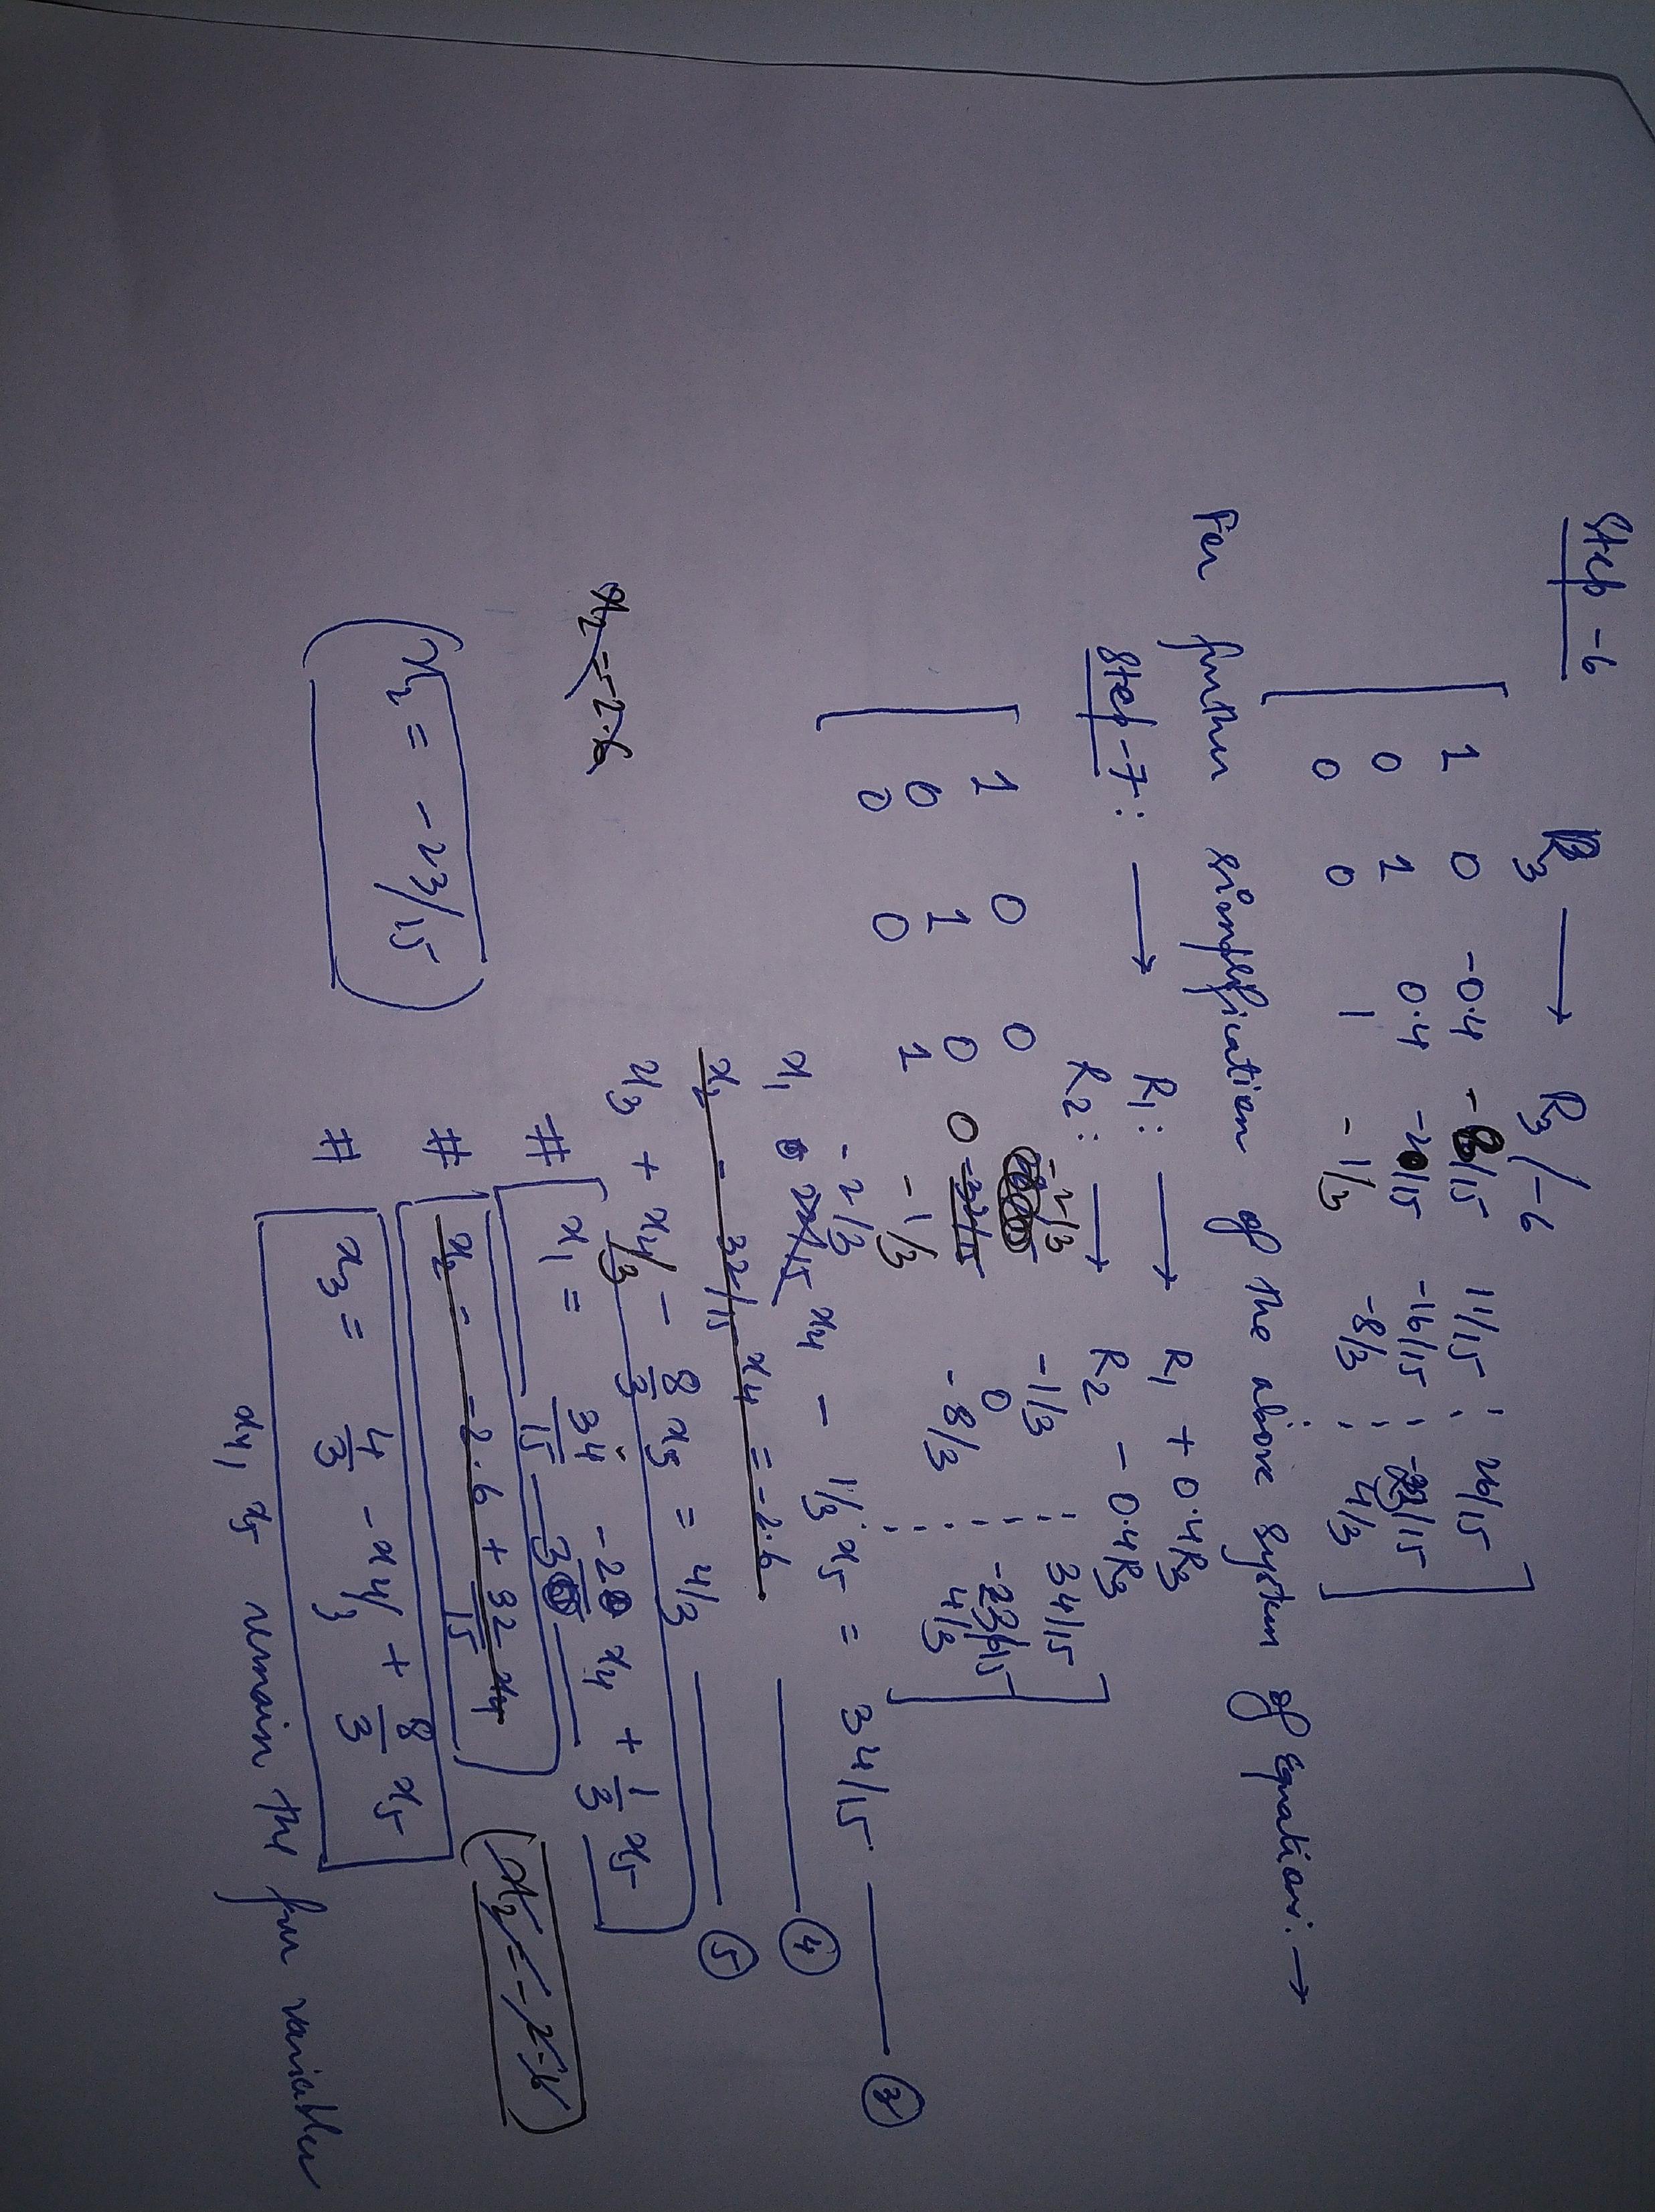 Step -6
R3 → R3/-6
1 0 -0.4 -8/15 11/15 26/15
0 1 0.4 -20/15 -16/15 -23/15
0 0 1 -1/3 -8/3 4/3
For further simplification of the above system of Equations: →
Step-7: → R1: → R1 + 0.4R3
R2: → R2 - 0.4R3
1 0 0 -2/3 -1/3 34/15
0 1 0 0 -32/15 0 -23/15
0 0 1 -1/3 -8/3 4/3
-2/3
x1 x4 - 1/3 x5 = 34/15 ③
x2 - 32/15 x4 = -2.6 ④
x3 + x4/3 - 8/3 x5 = 4/3 ⑤
x2 = -2.6
# x1 = 34/15 -2/3 x4 + 1/3 x5
# x2 = -2.6 + 32/15 x4
x2 = -2.6
x2 = -23/15
# x3 = 4/3 - x4/3 + 8/3 x5
x4, x5 remain the free variables